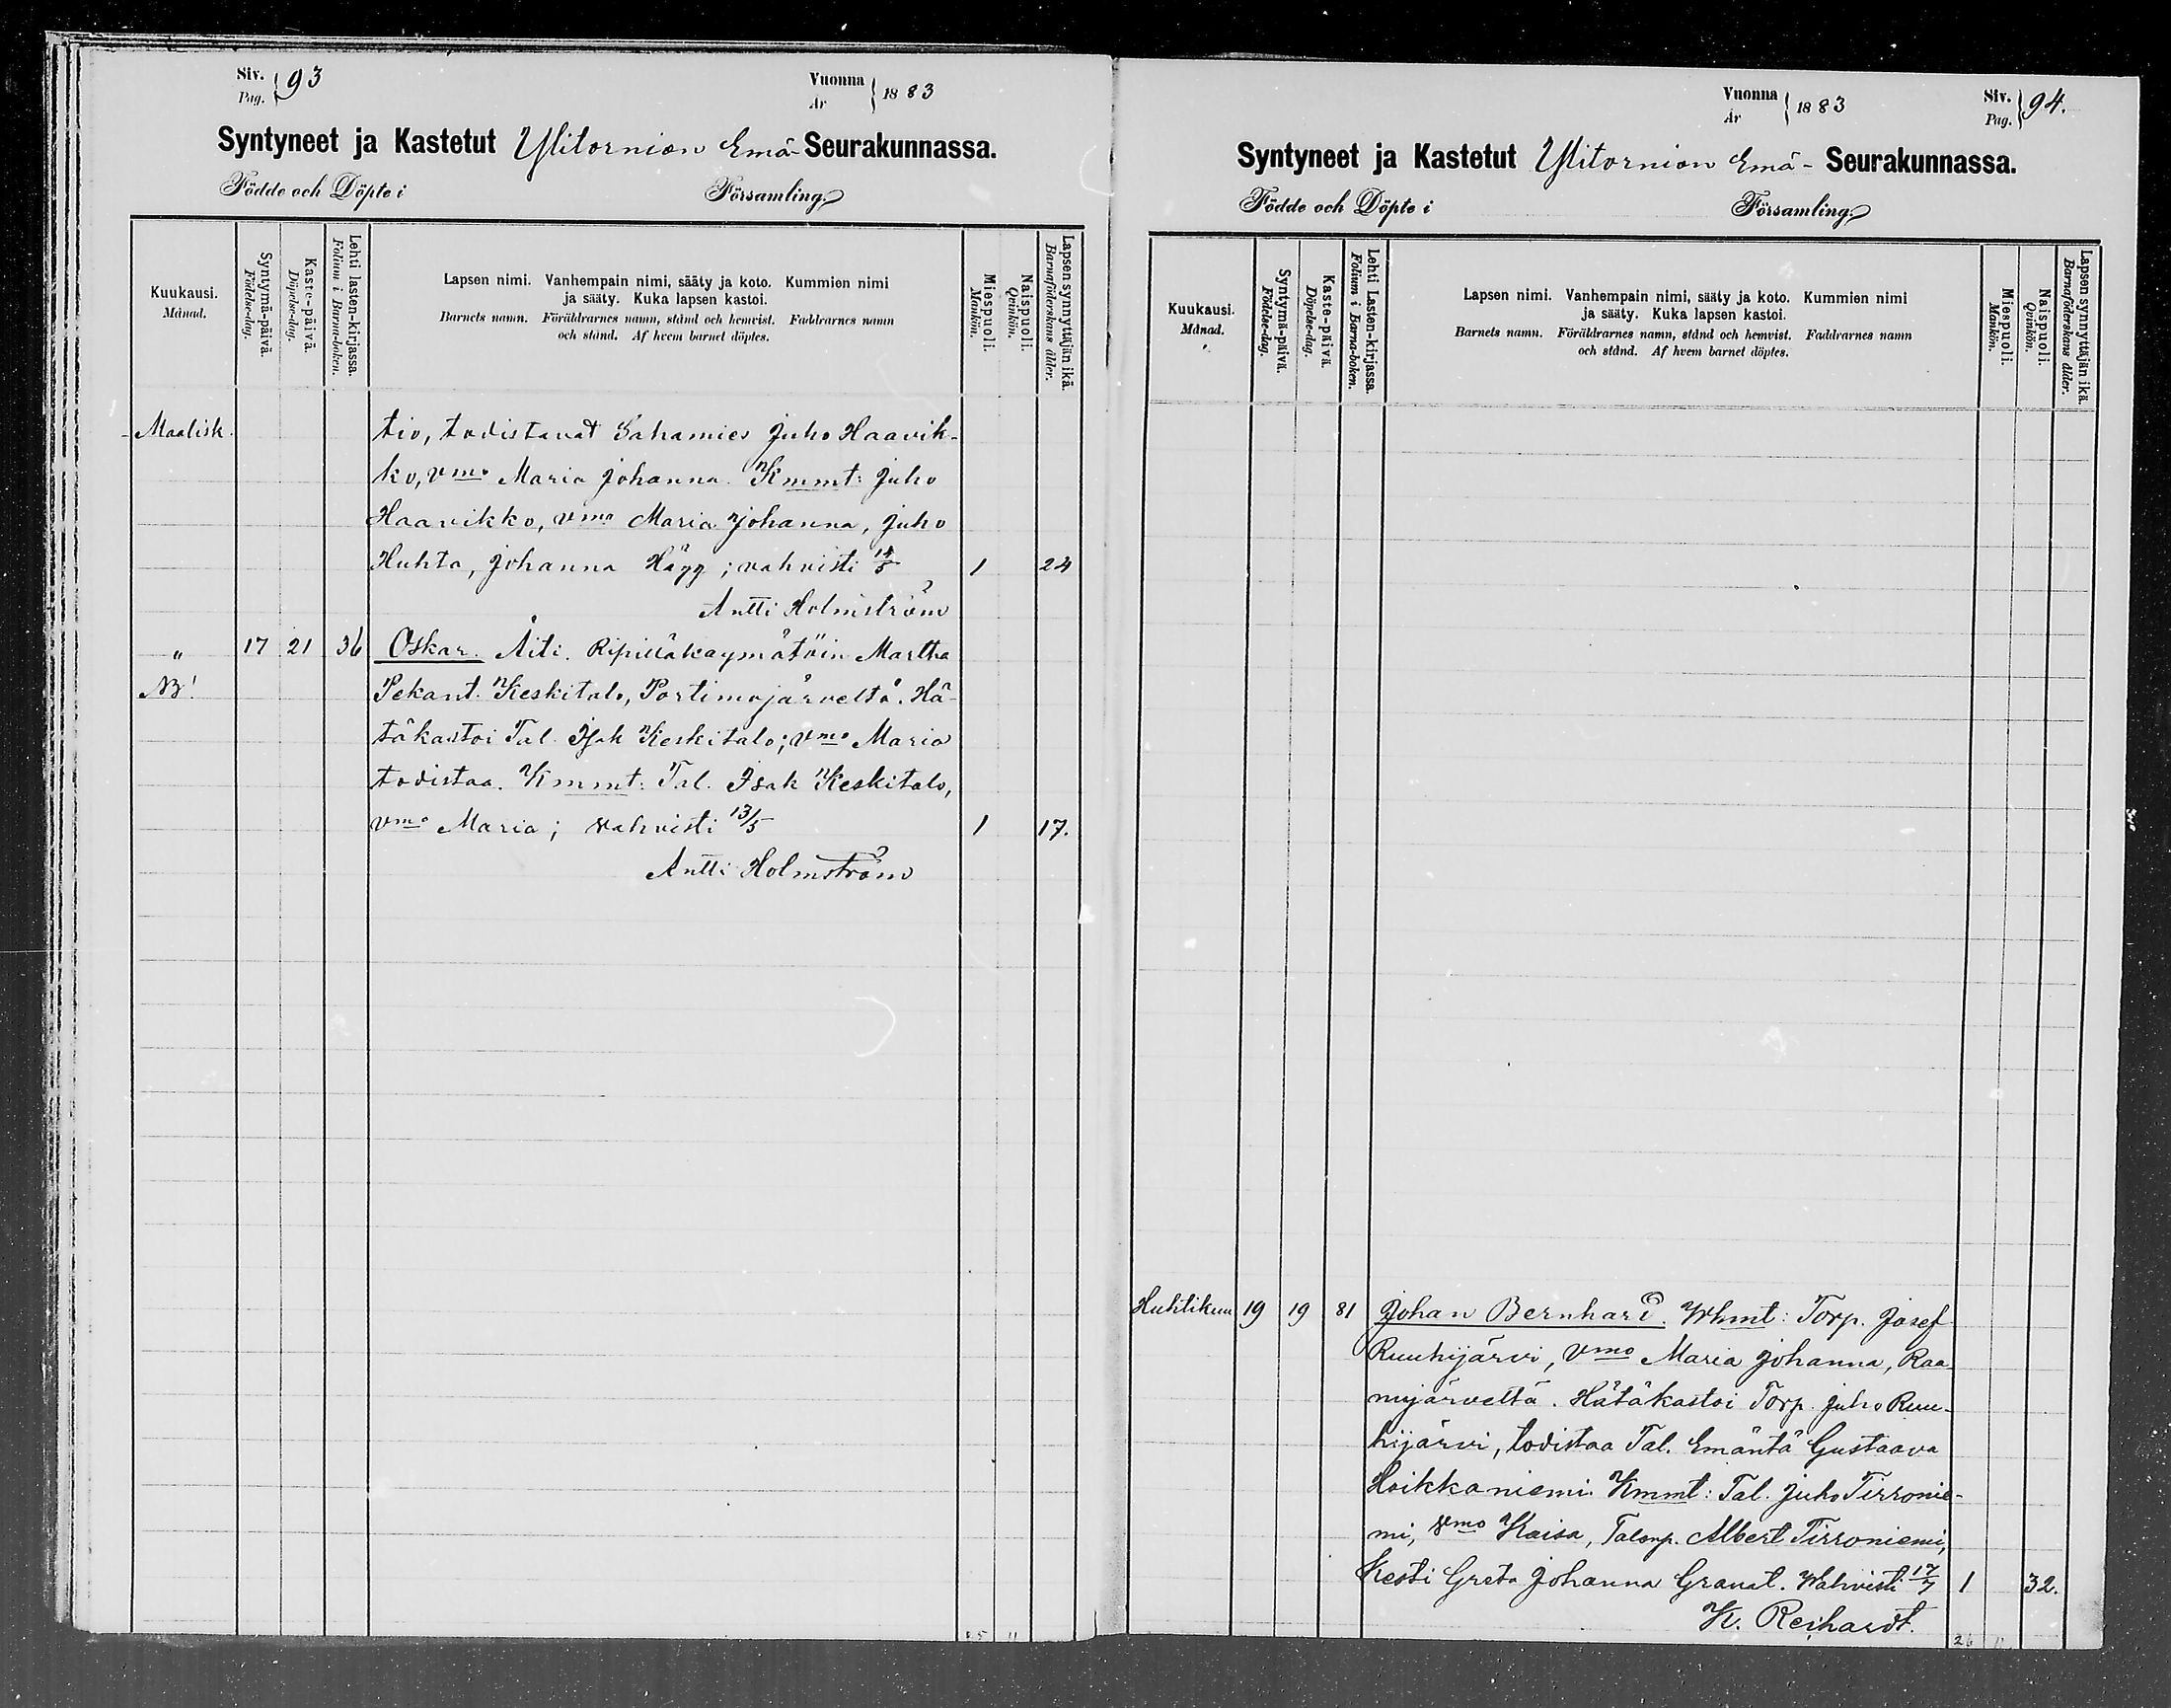 Siv. Pag. 93
Vuonna År 1883
Syntyneet ja Kastetut Ylitornion Emä-Seurakunnassa.
Födde och Döpte i Församling.
Kuukausi. Månad.
Syntymä-päivä. Födelse-dag.
Kaste-päivä. Döpelse-dag.
Lehti lasten-kirjassa. Folium i Barna-boken.
Lapsen nimi. Vanhempain nimi, sääty ja koto. Kummien nimi
ja sääty. Kuka lapsen kastoi.
Barnets namn. Föräldrarnes namn, stånd och hemvist. Faddrarnes namn
och stånd. Af hvem barnet döptes.
Miespuoli. Mankön.
Naispuoli. Qvinkön.
Lapsen synnyttäjän ikä. Barnaföderskans ålder.
Maalisk. tio, todistavat Sahamies Juho Haavik-
ko, vmo Maria Johanna. Kmmt: Juho
Haavikko, vmo Maria Johanna, Juho
Huhta, Johanna Hägg; vahvisti 1 24
Antti Holmström
" 17 21 36 Oskar. Äiti. Ripilläkäymätöin Martha
NB! Pekant. Keskitalo, Portimojärveltä. Hä-
täkastoi Tal. Isak Keskitalo; vmo Maria
todistaa. Kmmt: Tal. Isak Keskitalo,
vmo Maria; vahvisti 13/5 1 17.
Antti Holmström
25 11
Vuonna År 1883
Siv. Pag. 94.
Syntyneet ja Kastetut Ylitornion Emä- Seurakunnassa.
Födde och Döpte i Församling.
Kuukausi. Månad.
Syntymä-päivä. Födelse-dag.
Kaste-päivä. Döpelse-dag.
Lehti Lasten-kirjassa. Folium i Barna-boken.
Lapsen nimi. Vanhempain nimi, sääty ja koto. Kummien nimi
ja sääty. Kuka lapsen kastoi.
Barnets namn. Föräldrarnes namn, stånd och hemvist. Faddrarnes namn
och stånd. Af hvem barnet döptes.
Miespuoli. Mankön.
Naispuoli. Qvinkön.
Lapsen synnyttäjän ikä. Barnaföderskans ålder.
Huhtikuu 19 19 81 Johan Bernhard. Whmt: Torp. Josef
Ruuhijärvi, Vmo Maria Johanna, Raa
nujärveltä. Hätäkastoi Torp. Juho Ruu-
hijärvi, todistaa Tal. Emäntä Gustaava
Hoikkaniemi. Kmmt: Tal. Juho Tirronie-
mi, vmo Kaisa, Talonp. Albert Tirroniemi,
Kesti Greta Johanna Granat. Wahvisti 17/7 1 32.
K. Reihardt.
26 11